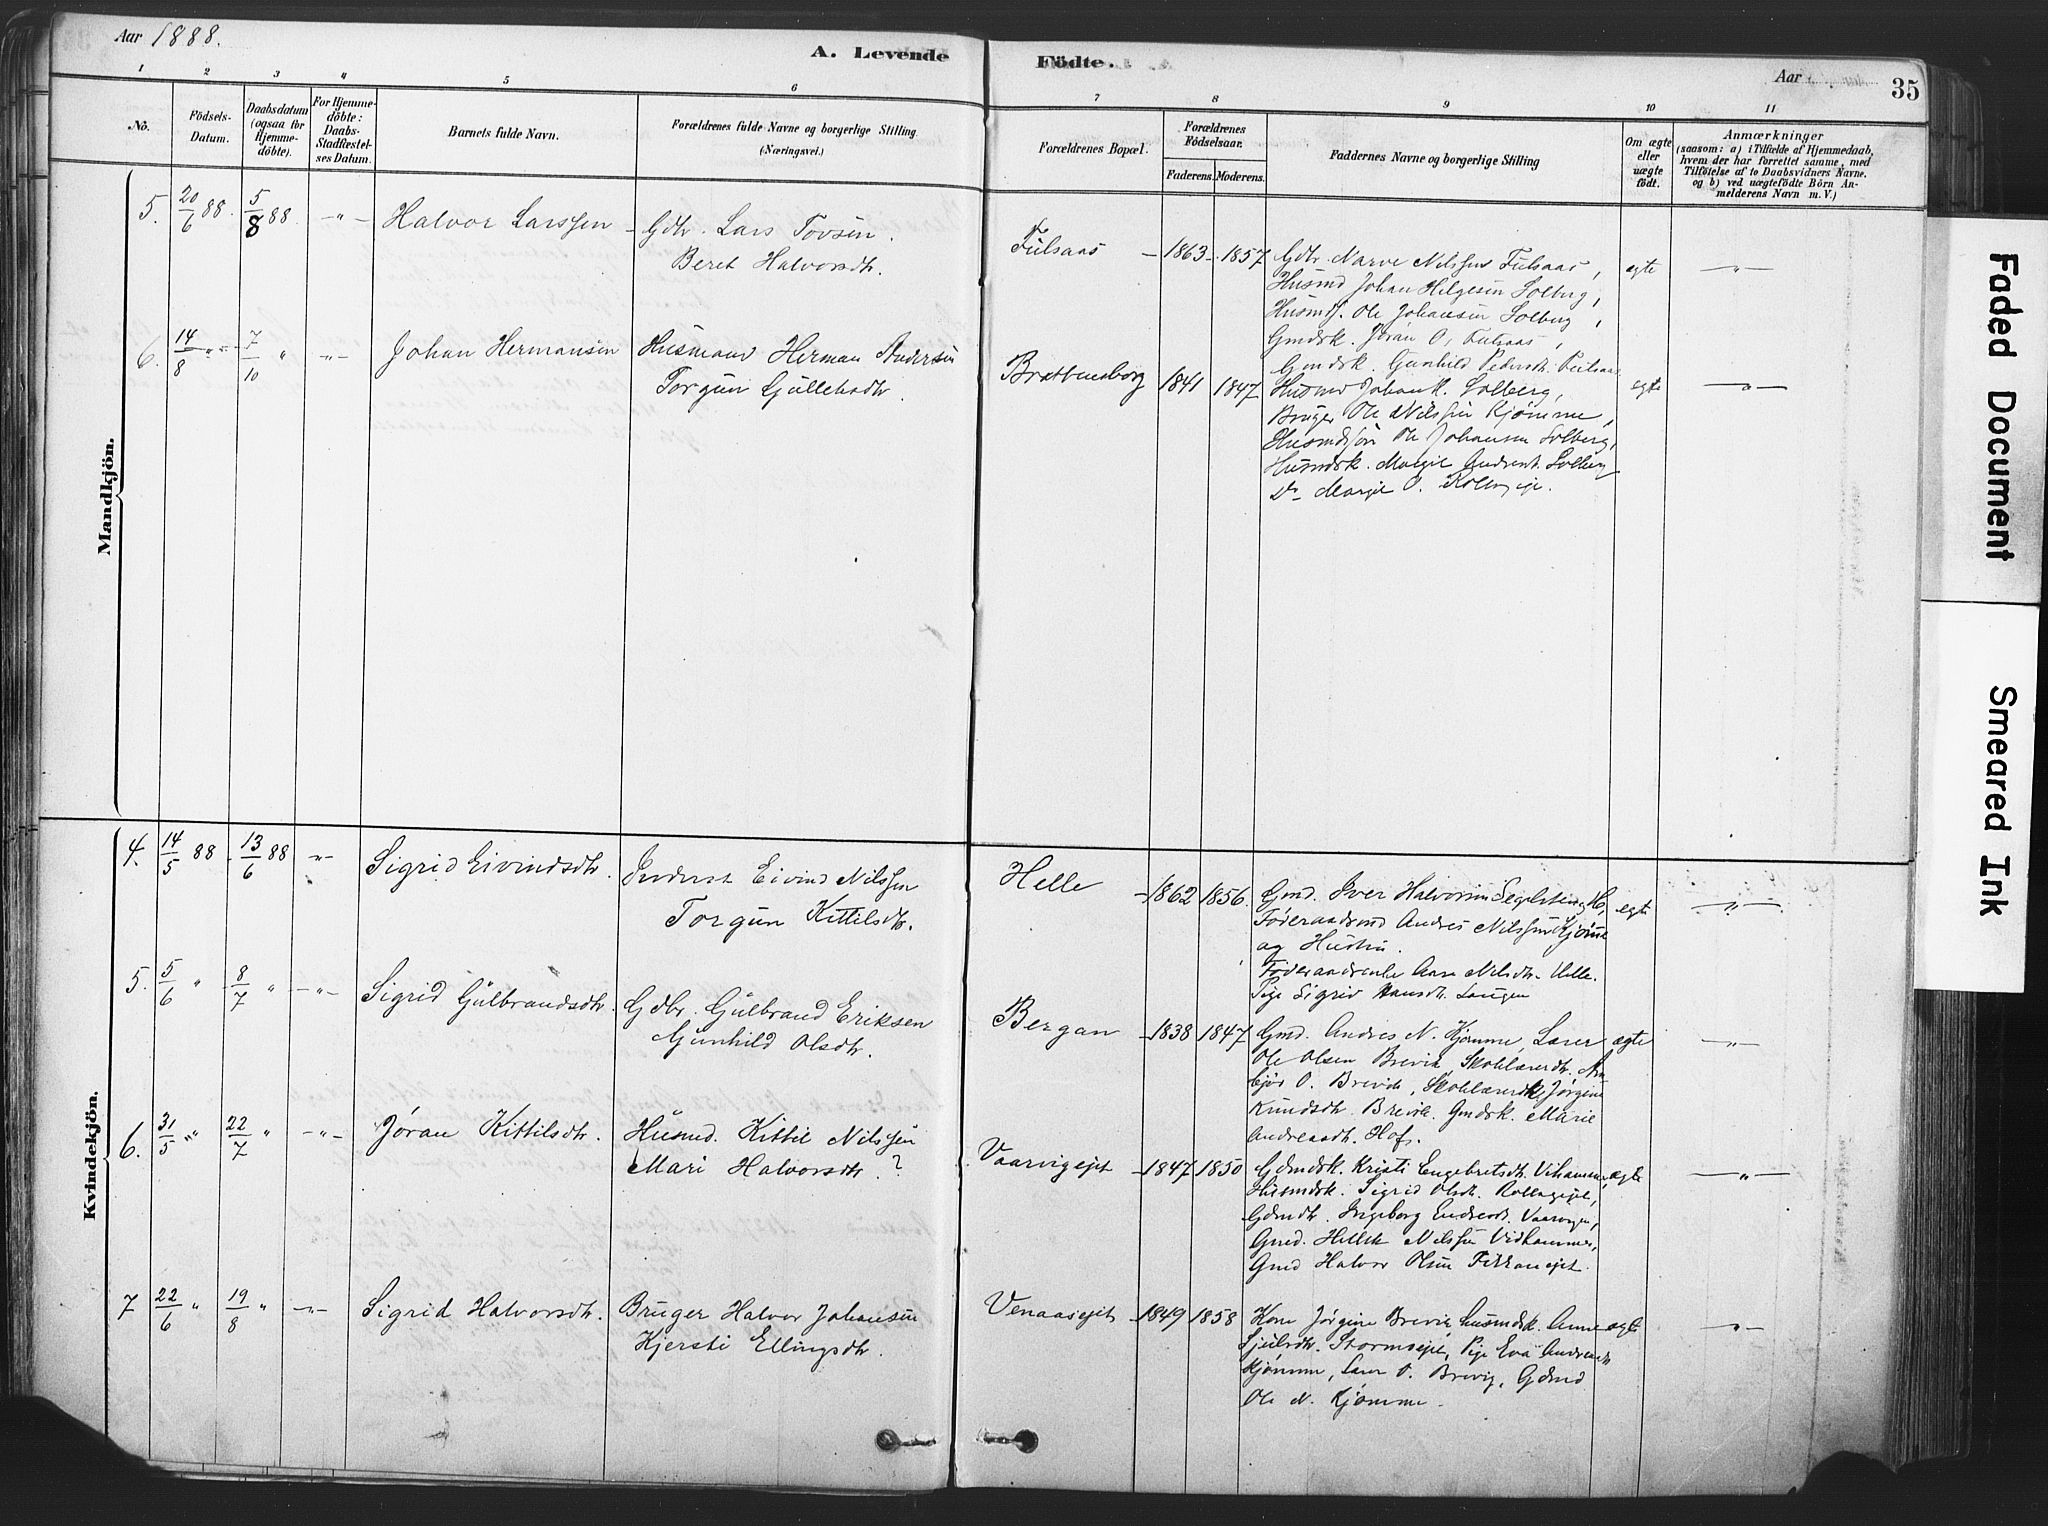 Aar 1888.
A. Levende Födte.
Aar
35
1 2 3 4 5 6 7 8 9 10 11
No.
Födsels-
Datum.
Daabsdatum
(ogsaa for
Hjemme-
döbte).
For Hjemme-
döbte:
Daabs-
Stadfæstel-
ses Datum.
Barnets fulde Navn.
Forældrenes fulde Navne og borgerlige Stilling.
(Næringsvei.)
Forældrenes Bopæl.
Forældrenes
Födselsaar.
Faderens. Moderens.
Faddernes Navne og borgerlige Stilling
Om ægte
eller
uægte
födt.
Anmærkninger
(saasom: a) i Tilfælde af Hjemmedaab,
hvem der har forrettet samme, med
Tilföielse af to Daabsvidners Navne.
og b) ved uægtefödte Börn An-
melderens Navn m.V.)
Mandkjön.
5. 20/6 88. 5/8 88 -"- Halvor Larssen - Gdbr. Lars Tovsen.
Beret Halvorsdtr.
Fulsaas - 1863 - 1857 Gdbr. Narve Nilssen Fulsaas, egte -"-
Husmd Johan Helgesen Solberg,
Husmds. Ole Johansen Solberg,
Gmdsk. Jöran O. Fulsaas,
Gmdsk. Gunhild Pedersdtr. Fulsaas
6. 14/8 " 7/10 " -"- Johan Hermansen Husmand Herman Andersen
Torgun Gullehsdtr.
Brattensborg 1841 1847 Husmd Johan H. Solberg, egte -"-
Bruger Ole Nilssen Kjömme,
Husmdssön Ole Johansen Solberg,
Husmdsk. Margit Andersdt. Solberg
Do Margit O.
Kvindekjön.
4. 14/5 88 13/6 88 -"- Sigrid Eivindsdtr. Inderst Eivind Nilssen
Torgun Kittilsdtr.
Helle - 1862 1856. Gmd. Iver Halvorsen egte -"-
Föderaadsmd Andres Nilssen Kjömme
og Hustru.
Föderaadsenke Aase Nilsdtr. Helle.
Pige Sigrid Hansdtr. Langen
5. 5/6 " 8/7 " -"- Sigrid Gulbrandsdtr. Gdbr. Gulbrand Eriksen
Gunhild Olsdtr.
Bergan - 1838 1847 Gmd. Andres N. Kjömme, Lærer ægte -"-
Ole Olsen Brevik, Skolelærerdtr. Am-
björ O. Brevik, Skolelærersk. Jörgine
Knudsdtr. Brevik. Gmdsk. Marie
Andreasdtr. Hof.
6. 31/5 " 22/7 " -"- Jöran Kittilsdtr. Husmd. Kittil Nilssen
Mari Halvorsdtr. ?
Vaarvigejet - 1847 1850 Gdmdsk. Kristi Engebretsdtr. ægte -"-
Husmdsk. Sigrid Olsdtr.
Gdmdtr. Ingeborg Endresdt.
Gmd. Hellek Nilssen Vidhammer,
Gmd Halvor Olsen
7 22/6 " 19/8 " -"- Sigrid Halvorsdtr. Bruger Halvor Johansen
Kjersti Ellingsdtr.
Venaasejet - 1849 1858 Kone Jörgine Brevik, Husmdsk. Anne egte -"-
Pige Eva Andreasdtr
Kjömme, Lærer O. Brevig, Gdmd
Ole N. Kjömme.
Faded Document
Smeared Ink